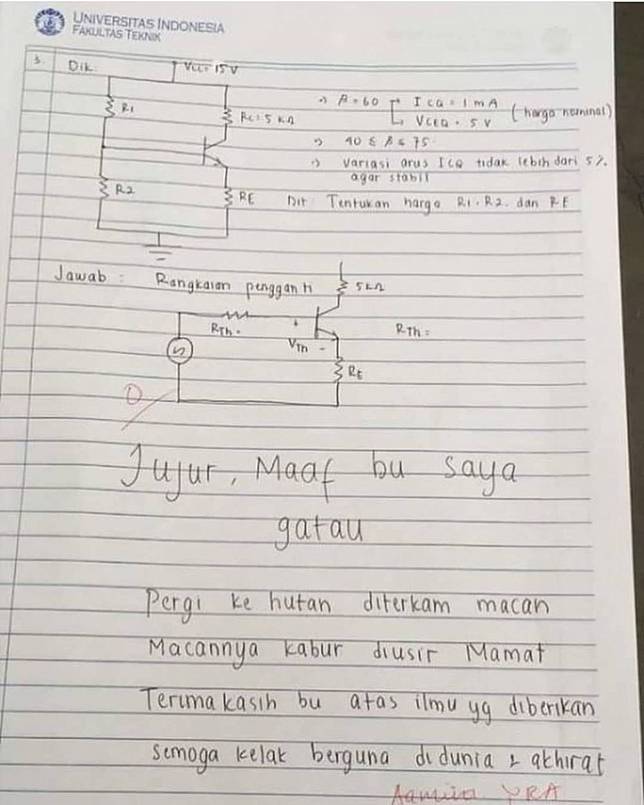 UNIVERSITAS INDONESIA
FAKULTAS TEKNIK
3. Dik
VCC = 15 V
R1
RC = 5 kΩ
R2
RE
→ β = 60 → ICQ = 1 mA
VCEQ = 5 V (harga nominal)
→ 40 ≤ β ≤ 75
→ variasi arus ICQ tidak lebih dari 5%
agar stabil
Dit Tentukan harga R1, R2, dan RE
Jawab : Rangkaian pengganti
5kΩ
RTh =
+
VTh -
RTh =
RE
0
Jujur, Maaf bu saya
gatau
Pergi ke hutan diterkam macan
Macannya kabur diusir Mamat
Terima kasih bu atas ilmu yg diberikan
semoga kelak berguna di dunia & akhirat
Aamiin YRA